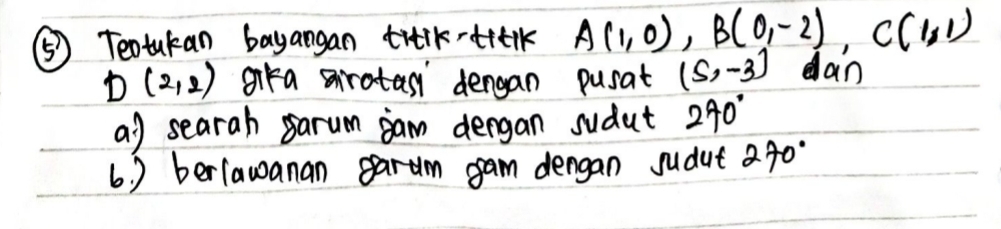 ⑤ Tentukan bayangan titik-titik A(1,0), B(0,-2), C(1,1)
D (2,2) jika dirotasi dengan pusat (5,-3) dan
a.) searah jarum jam dengan sudut 270°
b.) berlawanan jarum jam dengan sudut 270°